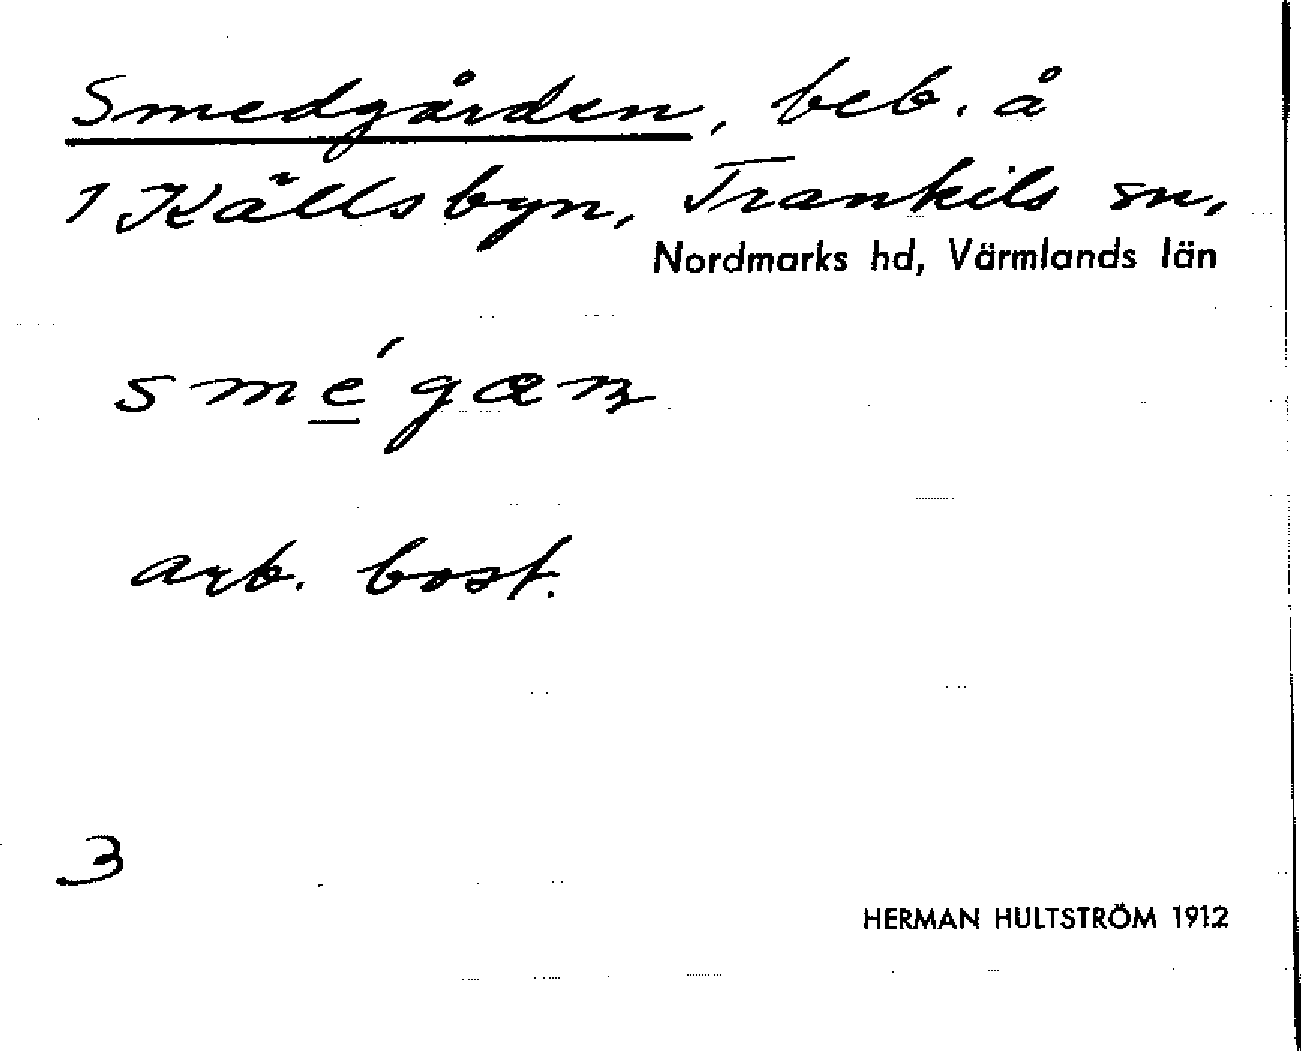 Smedgården, beb. å
1 Källsbyn, Trankils sn,
Nordmarks hd, Värmlands län
smé̲gan
arb. bost.
3
HERMAN HULTSTRÖM 1912